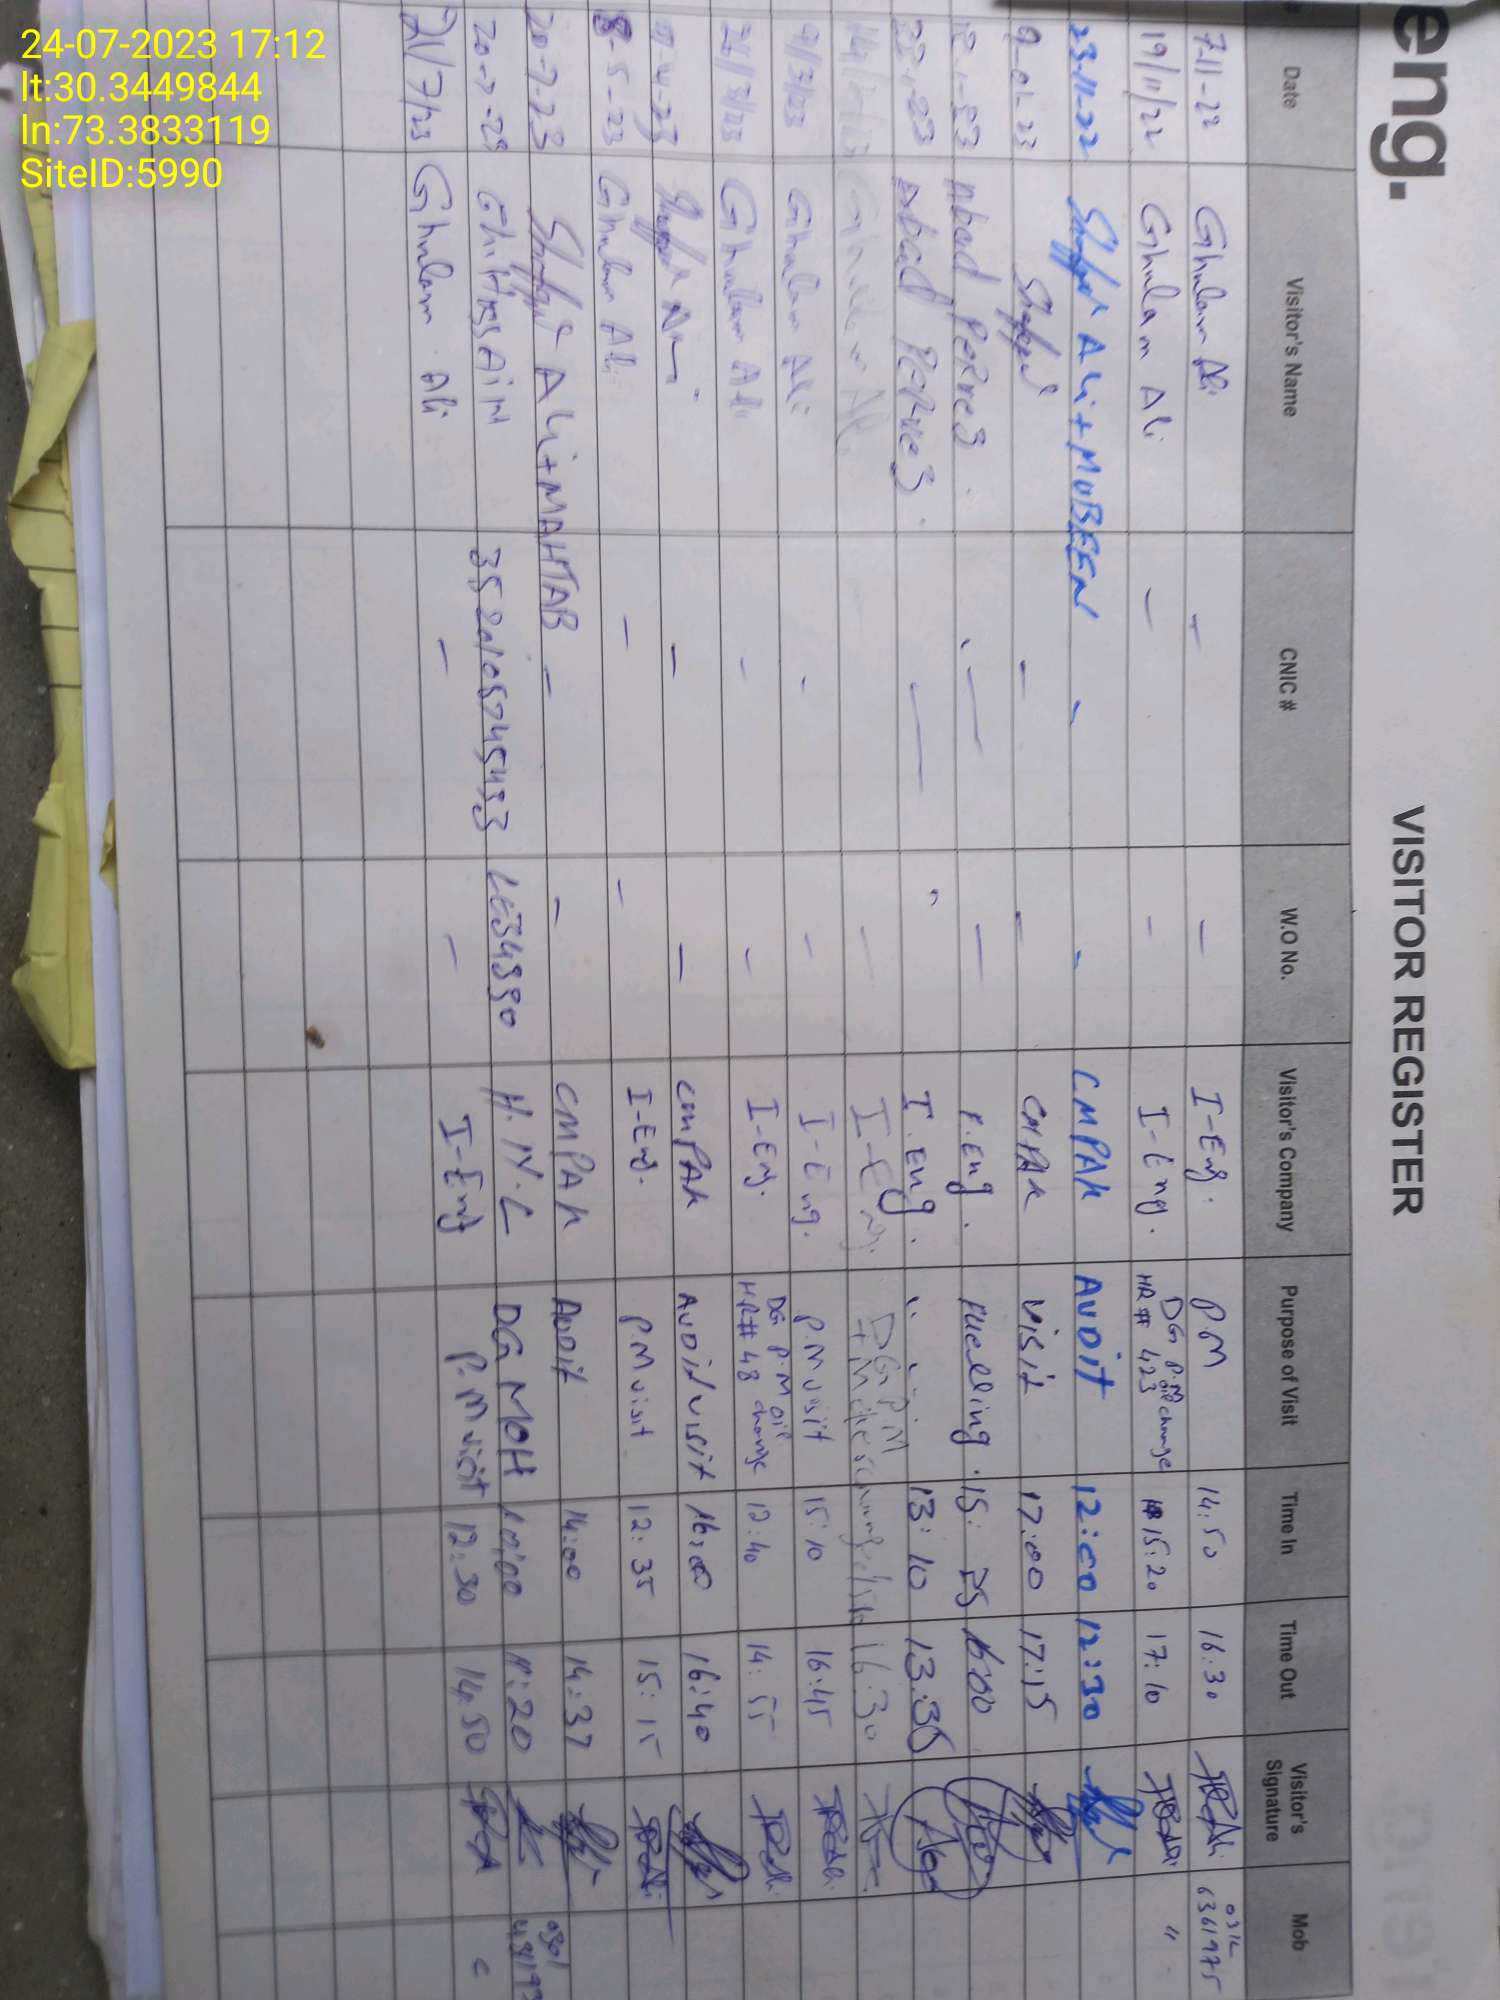 24-07-2023 17:12
lt:30.3449844
ln:73.3833119
SiteID:5990
eng.
VISITOR REGISTER
Date Visitor's Name CNIC # W.O No. Visitor's Company Purpose of Visit Time In Time Out Visitor's Signature Mob
7-11-22 Ghulam Ali - - I-Eng. PM 14:50 16:30 6361975
19/11/22 Ghulam Ali - - I-Eng. DG P.M oil change HR # 423 15:20 17:10 "
23-11-22 Shafqat Ali+MOBEEN - - CMPAK AUDIT 12:00 12:30
9-01-23 Shafqat - - CMPAK Visit 17:00 17:15
12-1-23 Abad Perve3 - - I.Eng. Fuelling. 15:25 16:00
22-1-23 Abad Perve3. - " I.Eng. " " 13:10 13:36
Ghulam Ali - I-Eng. DG P.M 16:30
9/3/23 Ghulam Ali - - I-Eng. P.M visit 15:10 16:45
Ghulam Ali - - I-Eng. DG P.M oil change HR# 48 12:40 14:55
Shafqat Ali - - CMPAK AUDIT Visit 16:00 16:40
8-5-23 Ghulam Ali - - I-Eng. P.M visit 12:35 15:15
20-7-23 Shafqat Ali+MAHTAB - - CMPAK AUDIT 14:00 14:37
20-7-23 H.N.L DG MOH 10:00 11:20
21/7/23 Ghulam Ali - - I-Eng P.M visit 12:30 14:50